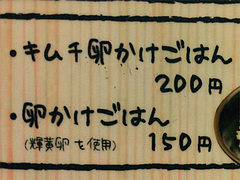 ・キムチ卵かけごはん
200円
・卵かけごはん
(輝黄卵を使用) 150円